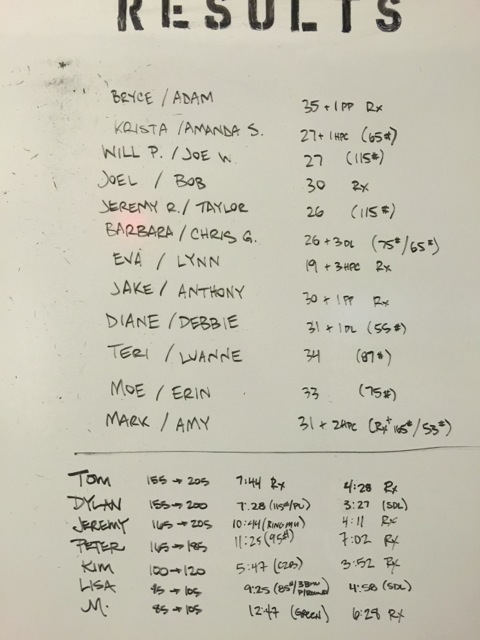 RESULTS
BRYCE / ADAM 35 + 1PP Rx
KRISTA / AMANDA S. 27 + 1HPC (65#)
WILL P. / JOE W. 27 (115#)
JOEL / BOB 30 Rx
JEREMY R. / TAYLOR 26 (115#)
BARBARA / CHRIS G. 26 + 3DL (75#/65#)
EVA / LYNN 19 + 3HPC Rx
JAKE / ANTHONY 30 + 1PP Rx
DIANE / DEBBIE 31 + 1DL (55#)
TERI / LUANNE 34 (87#)
MOE / ERIN 33 (75#)
MARK / AMY 31 + 2HPC (Rx+ 165#/53#)
TOM 155 → 205 7:44 Rx 4:28 Rx
DYLAN 155 → 200 7:28 (115#/PU) 3:27 (SDL)
JEREMY 165 → 205 10:44 (RING MU) 4:11 Rx
PETER 165 → 185 11:25 (95#) 7:02 Rx
KIM 100 → 120 5:47 (C2B) 3:52 Rx
LISA 85 → 105 9:25 (85#/3 P/ROUND) 4:58 (SDL)
M. 85 → 105 12:47 (GREEN) 6:28 Rx